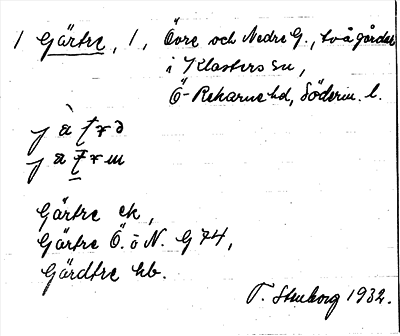 1 Gärtre, 1, Övre och Nedre G., två gårdar
i Klosters sn,
Ö-Rekarne hd, Söderm. l.
Gärtre ek,
Gärtre Ö. o N. G 74,
Gärdtre hb.
T. Stenborg 1932.